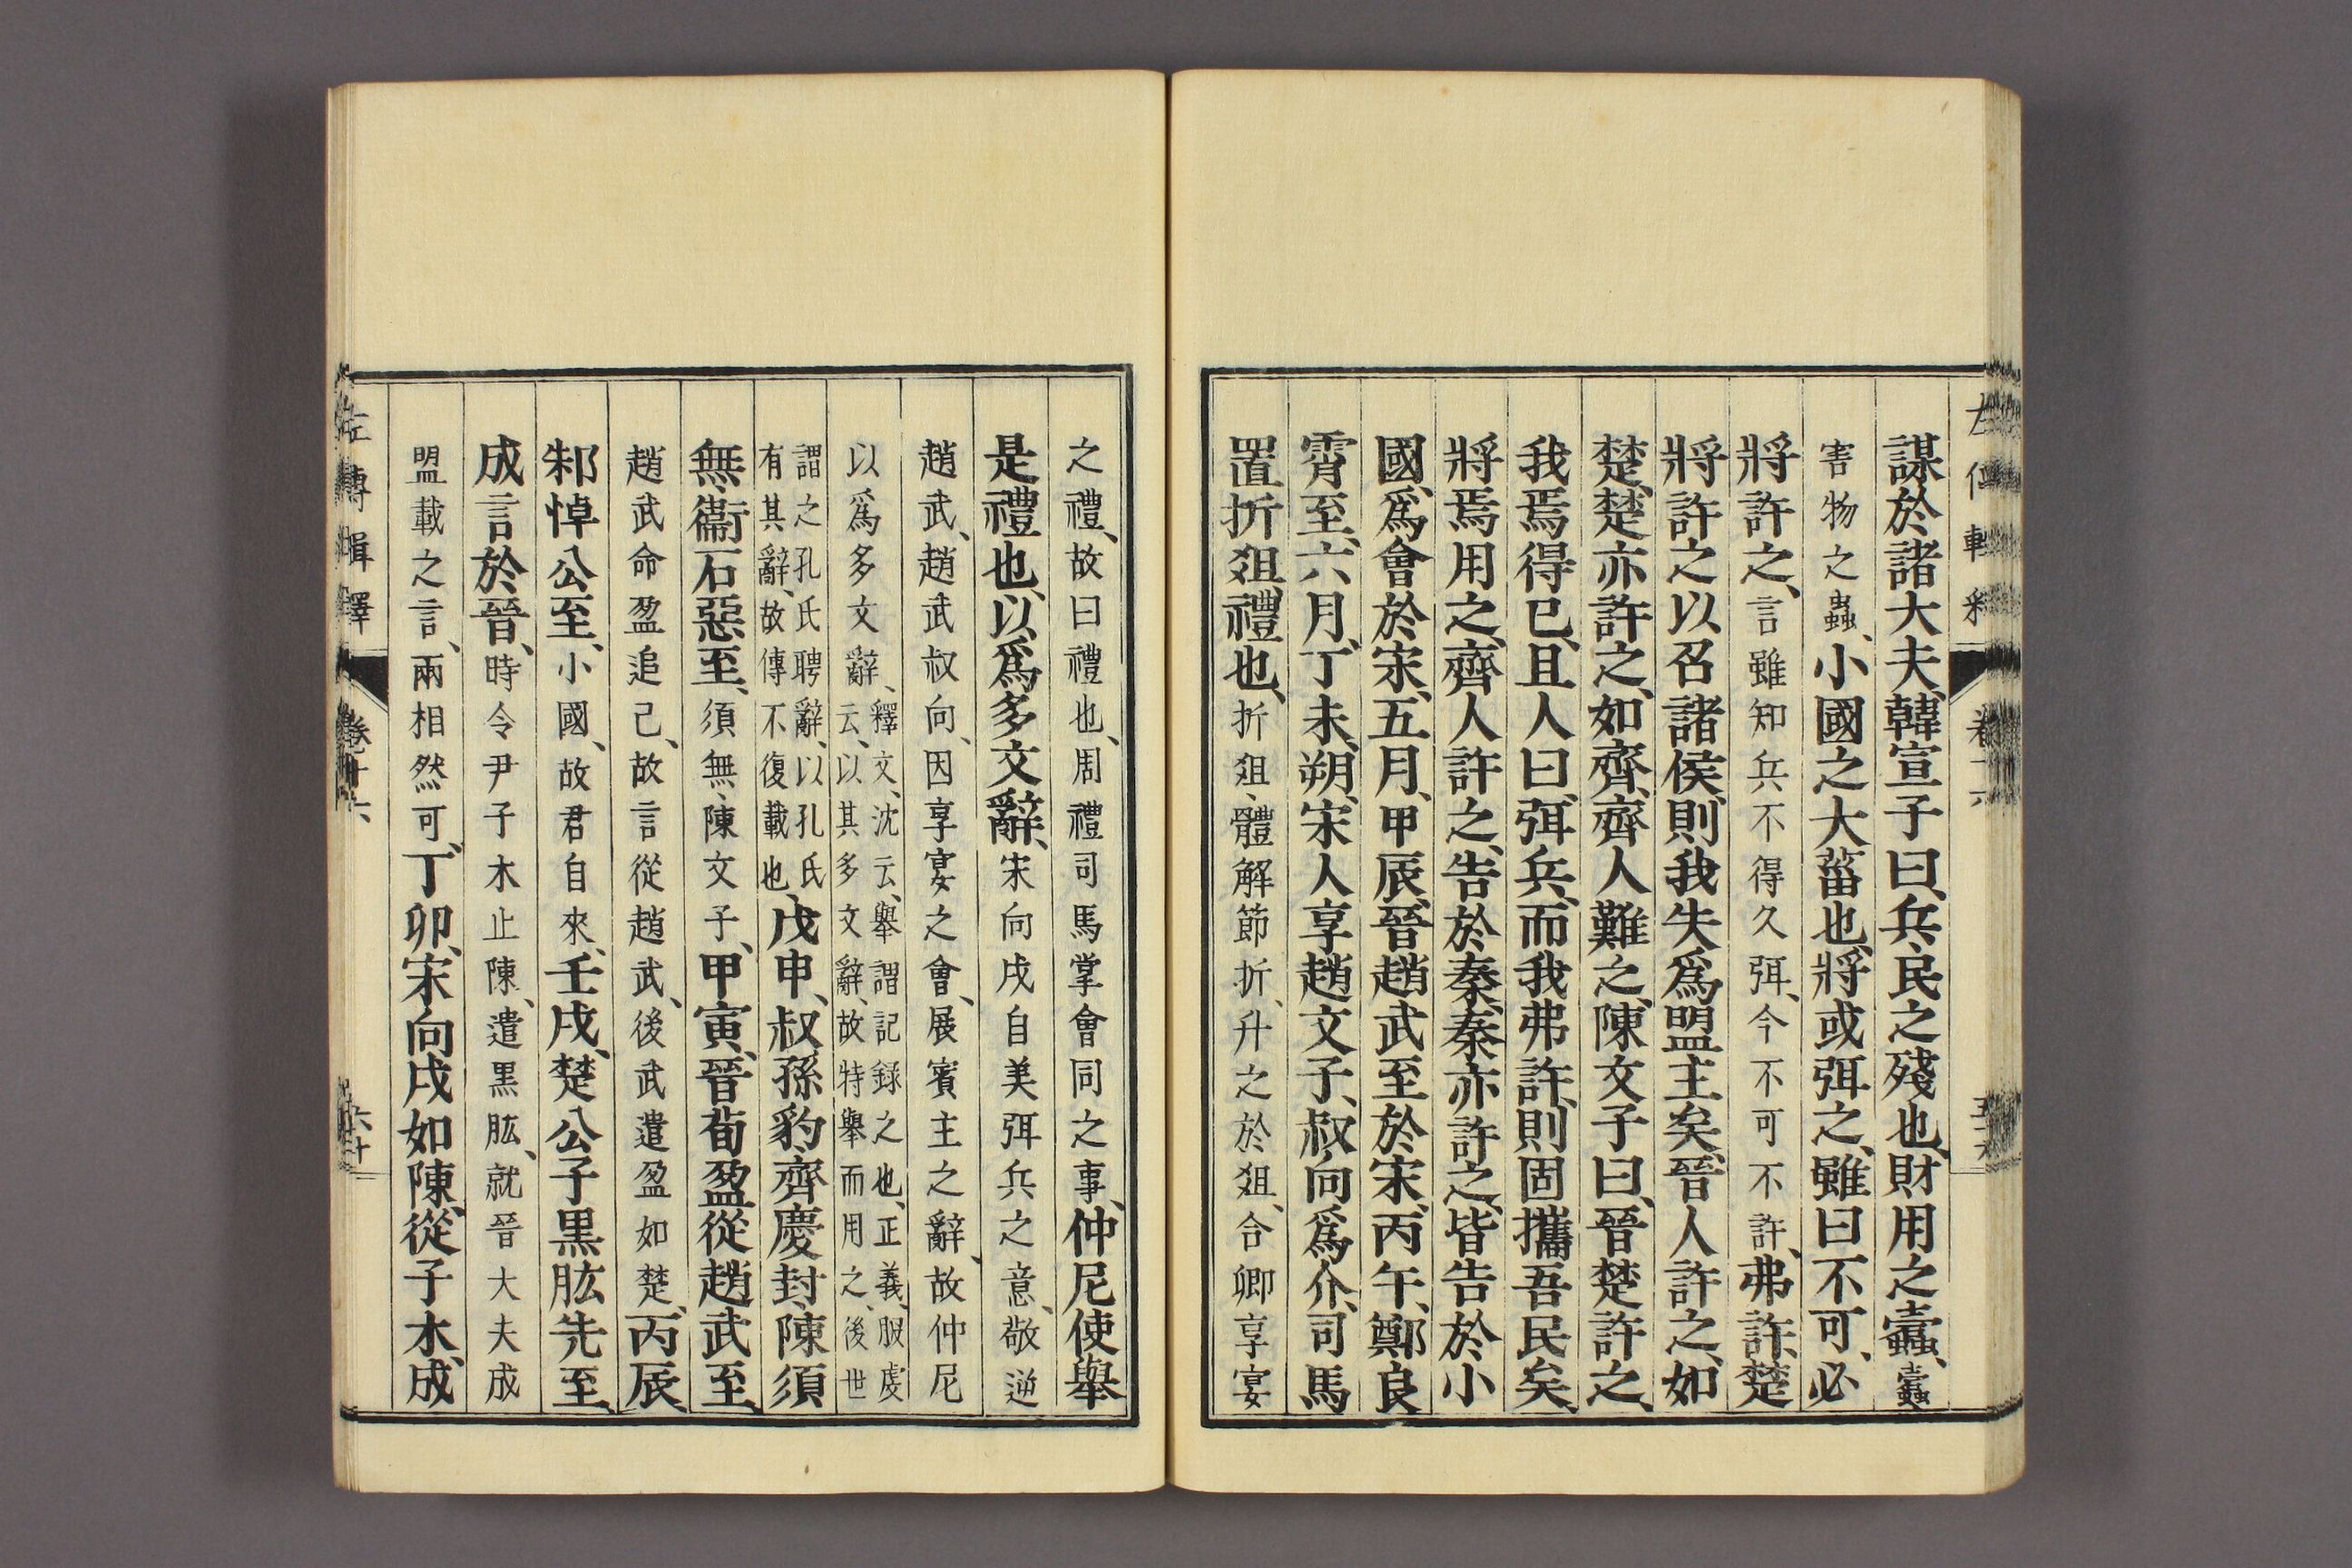 謀於諸大夫、韓宣子曰、兵、民之殘也、財用之蠹、蠹
害物之蟲、小國之大菑也、將或弭之、雖曰不可、必
將許之、言雖知兵不得久弭、今不可不許、弗許、楚
將許之、以召諸侯、則我失爲盟主矣、晉人許之、如
楚、楚亦許之、如齊、齊人難之、陳文子曰、晉楚許之、
我焉得已、且人曰、弭兵、而我弗許、則固攜吾民矣、
將焉用之、齊人許之、告於秦、秦亦許之、皆告於小
國、爲會於宋、五月、甲辰、晉趙武至於宋、丙午、鄭良
霄至、六月、丁未、朔、宋人享趙文子、叔向爲介、司馬
置折俎、禮也、折俎、體解節折、升之於俎、合卿享宴
之禮、故曰禮也、周禮司馬掌會同之事、仲尼使舉
是禮也、以爲多文辭、宋向戌自美弭兵之意、敬逆
趙武、趙武叔向、因享宴之會、展賓主之辭、故仲尼
以爲多文辭、釋文、沈云、舉謂記録之也、正義、服虔
云、以其多文辭、故特舉而用之、後世
謂之孔氏聘辭、以孔氏
有其辭、故傳不復載也、戊申、叔孫豹、齊慶封、陳須
無、衞石惡至、須無、陳文子、甲寅、晉荀盈從趙武至、
趙武命盈追己、故言從趙武、後武遣盈如楚、丙辰、
邾悼公至、小國、故君自來、壬戌、楚公子黑肱先至、
成言於晉、時令尹子木止陳、遣黑肱、就晉大夫成
盟載之言、兩相然可、丁卯、宋向戌如陳、從子木、成
左傳輯釋
卷十六
六十